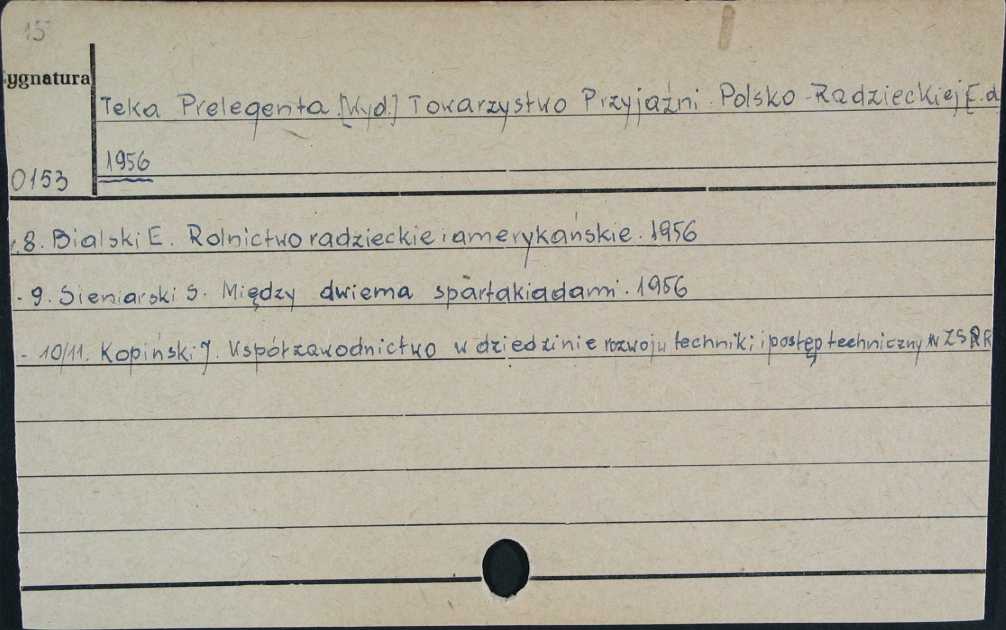 15
ygnatura
Teka Prelegenta. [Wyd.] Towarzystwo Przyjaźni Polsko-Radzieckiej [.d
1956
0153
8. Bialski E. Rolnictwo radzieckie i amerykańskie. 1956
- 9. Sieniarski S. Między dwiema spartakiadami. 1956
- 10/11. Kopiński J. Współzawodnictwo w dziedzinie rozwoju techniki i postęp techniczny w ZSRR